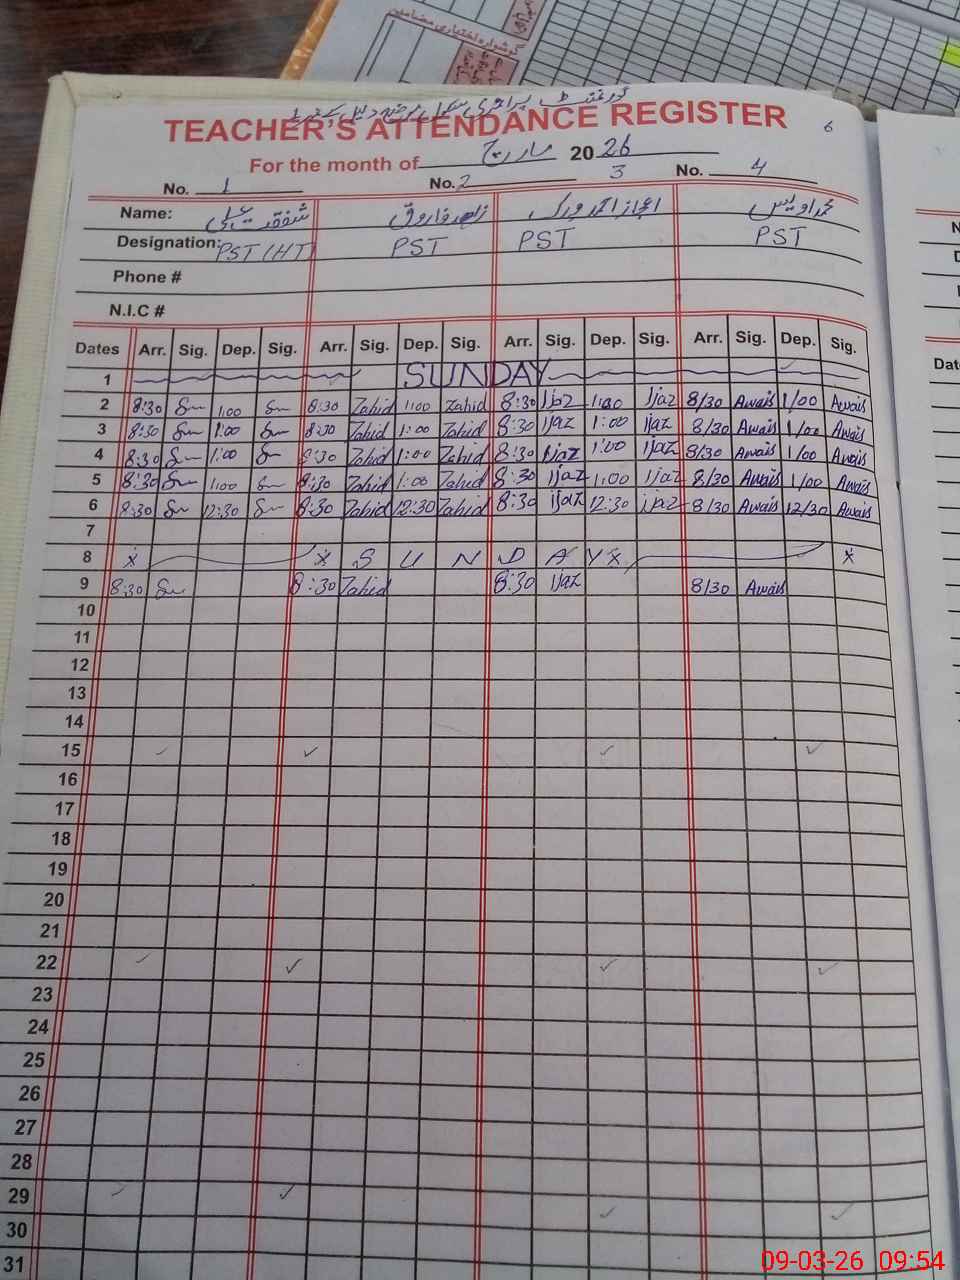 گوشوارہ اختیاری مضامین
گورنمنٹ پرائمری سکول
TEACHER'S ATTENDANCE REGISTER 6
For the month of مارچ 2026
No. 1 No. 2 3 No. 4
Name: شفقت علی زاہد فاروق اعجاز احمد ورک محمد اویس
Designation: PST (HT) PST PST PST
Phone #
N.I.C #
Dates Arr. Sig. Dep. Sig. Arr. Sig. Dep. Sig. Arr. Sig. Dep. Sig. Arr. Sig. Dep. Sig.
1 SUNDAY
2 8:30 1:00 8:30 Zahid 1:00 Zahid 8:30 Ijaz 1:00 Ijaz 8/30 Awais 1/00 Awais
3 8:30 1:00 8:30 Zahid 1:00 Zahid 8:30 Ijaz 1:00 Ijaz 8/30 Awais 1/00 Awais
4 8:30 1:00 8:30 Zahid 1:00 Zahid 8:30 Ijaz 1:00 Ijaz 8/30 Awais 1/00 Awais
5 8:30 1:00 8:30 Zahid 1:00 Zahid 8:30 Ijaz 1:00 Ijaz 8/30 Awais 1/00 Awais
6 8:30 12:30 8:30 Zahid 12:30 Zahid 8:30 Ijaz 12:30 Ijaz 8/30 Awais 12/30 Awais
7
8 SUNDAY
9 8:30 8:30 Zahid 8:30 Ijaz 8/30 Awais
10
11
12
13
14
15
16
17
18
19
20
21
22
23
24
25
26
27
28
29
30
31
09-03-26 09:54